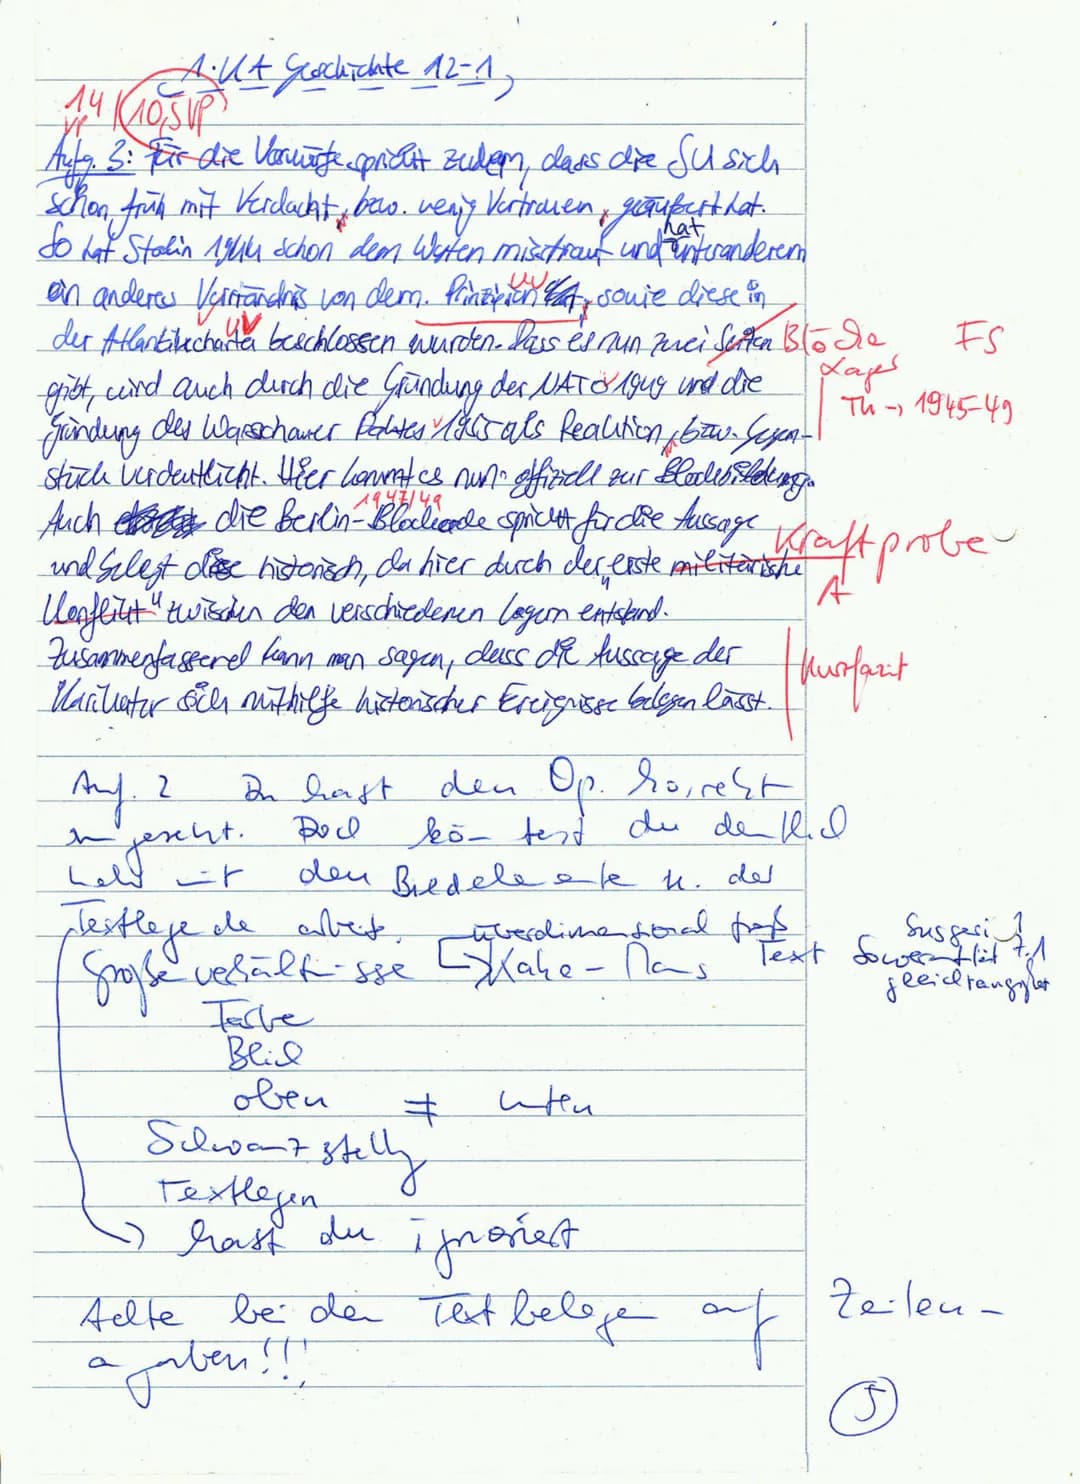 1. KA Geschichte 12-1,
14 VP / 10,5 VP
Aufg. 3: Für die Vorwürfe spricht zudem, dass die SU sich
schon früh mit Verdacht, bzw. wenig Vertrauen, geäußert hat.
So hat Stalin 1944 schon dem Westen misstraut und hat unteranderem
ein anderes Verständnis von dem. Prinzipien, sowie diese in
der Atlantikcharta beschlossen wurden. Dass es nun zwei Seiten Blöcke FS
Lager
gibt, wird auch durch die Gründung der NATO 1949 und die
Th → 1945-49
Gründung des Warschauer Paktes 1955 als Reaktion, bzw. Gegen-
stück verdeutlicht. Hier kommt es nun offiziell zur Blockbildung.
1947/49
Auch die Berlin-Blockade spricht für die Aussage
Kraftprobe
und belegt diese historisch, da hier durch der „erste militärische
A
Konflikt" zwischen den verschiedenen Lagern entstand.
Zusammenfassend kann man sagen, dass die Aussage der
Kurzfazit
Karikatur sich mithilfe historischer Ereignisse belegen lässt.
Auf. 2 Du hast den Op. korrekt
umgesetzt. Doch könntest du deutlich
mehr mit den Bildelemente u. der
Textlegende arbeit.
überdimensional groß
Suggeri
Größeverhältnisse → Kahe - Maus Text Souveränität
gleichrangigkeit
Farbe
Blick
oben ≠ unten
Schwanzstellg
Textlegen
→ hast du ignoriert
Achte bei den Textbelegen auf Zeilen-
angaben!!!
5